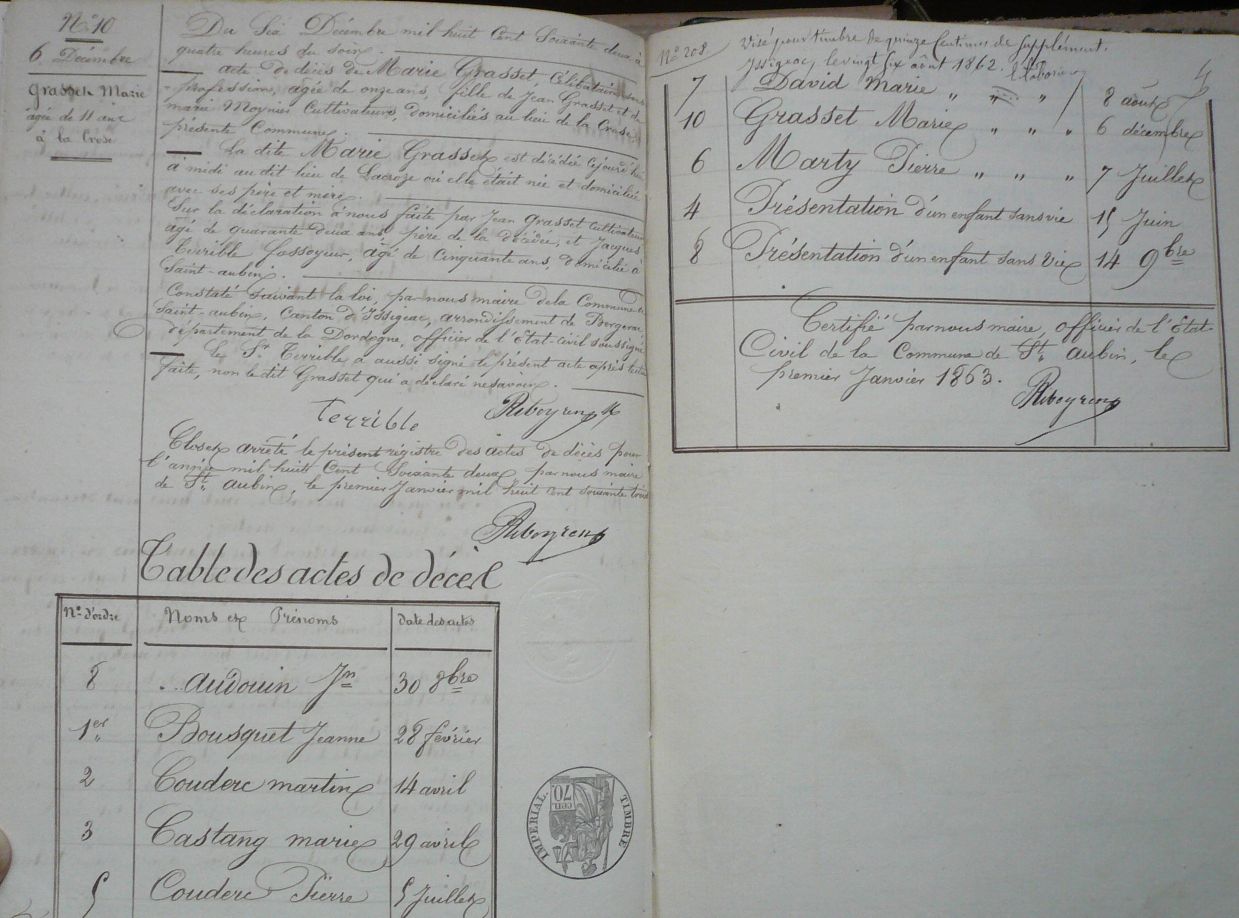 N° 10
6 Décembre
Grasset Marie
âgée de 11 ans
à la Croze
Du Six Décembre mil huit Cent Soixante deux à
quatre heures du soir.
acte de décès de Marie Grasset Célibataire sans
profession, agée de onze ans, fille de Jean Grasset et de
marie Moynier Cultivateurs, domiciliés au lieu de la Croze
présente Commune.
La dite Marie Grasset est décédée cejourd'hui
à midi au dit lieu de Lacroze où elle était née et domiciliée
avec ses père et mère.
Sur la déclaration à nous faite par Jean Grasset Cultivateur
âgé de quarante deux ans père de la décédée, et Jacques
Terrible fossoyeur, âgé de Cinquante ans, domicilié à
Saint-aubin.
Constaté Suivant la loi, par nous maire de la Commune de
Saint-aubin, Canton d'Issigeac, arrondissement de Bergerac
département de la Dordogne, officier de l'Etat civil soussigné
Le Sr Terrible a aussi signé le présent acte après lecture
faite, non le dit Grasset qui a déclaré ne savoir.
Terrible Ribeyren
Clos et arrêté le présent régistre des actes de décès pour
l'année mil huit Cent Soixante deux par nous maire
de St. Aubin, le premier Janvier mil huit cent soixante trois
Ribeyren
Table des actes de décès
N° d'ordre Noms et Prénoms Date des actes
8 Audouin Jn 30 8bre
1er Bousquet Jeanne 28 février
2 Couderc martin 14 avril
3 Castang marie 29 avril
5 Couderc Pierre 5 Juillet
IMPERIAL. TIMBRE
70 cen.
N° 208 Visé pour timbre de quinze Centimes de Supplément.
Issigeac, le vingt six août 1862.
7 David Marie „ „ „ 8 août
10 Grasset Marie „ „ „ 6 décembre
6 Marty Pierre „ „ „ 7 Juillet
4 Présentation d'un enfant sans vie 15 Juin
8 Présentation d'un enfant sans vie 14 9bre
Certifié par nous maire, officier de l'Etat-
Civil de la Commune de St. Aubin, le
premier Janvier 1863.
Ribeyren